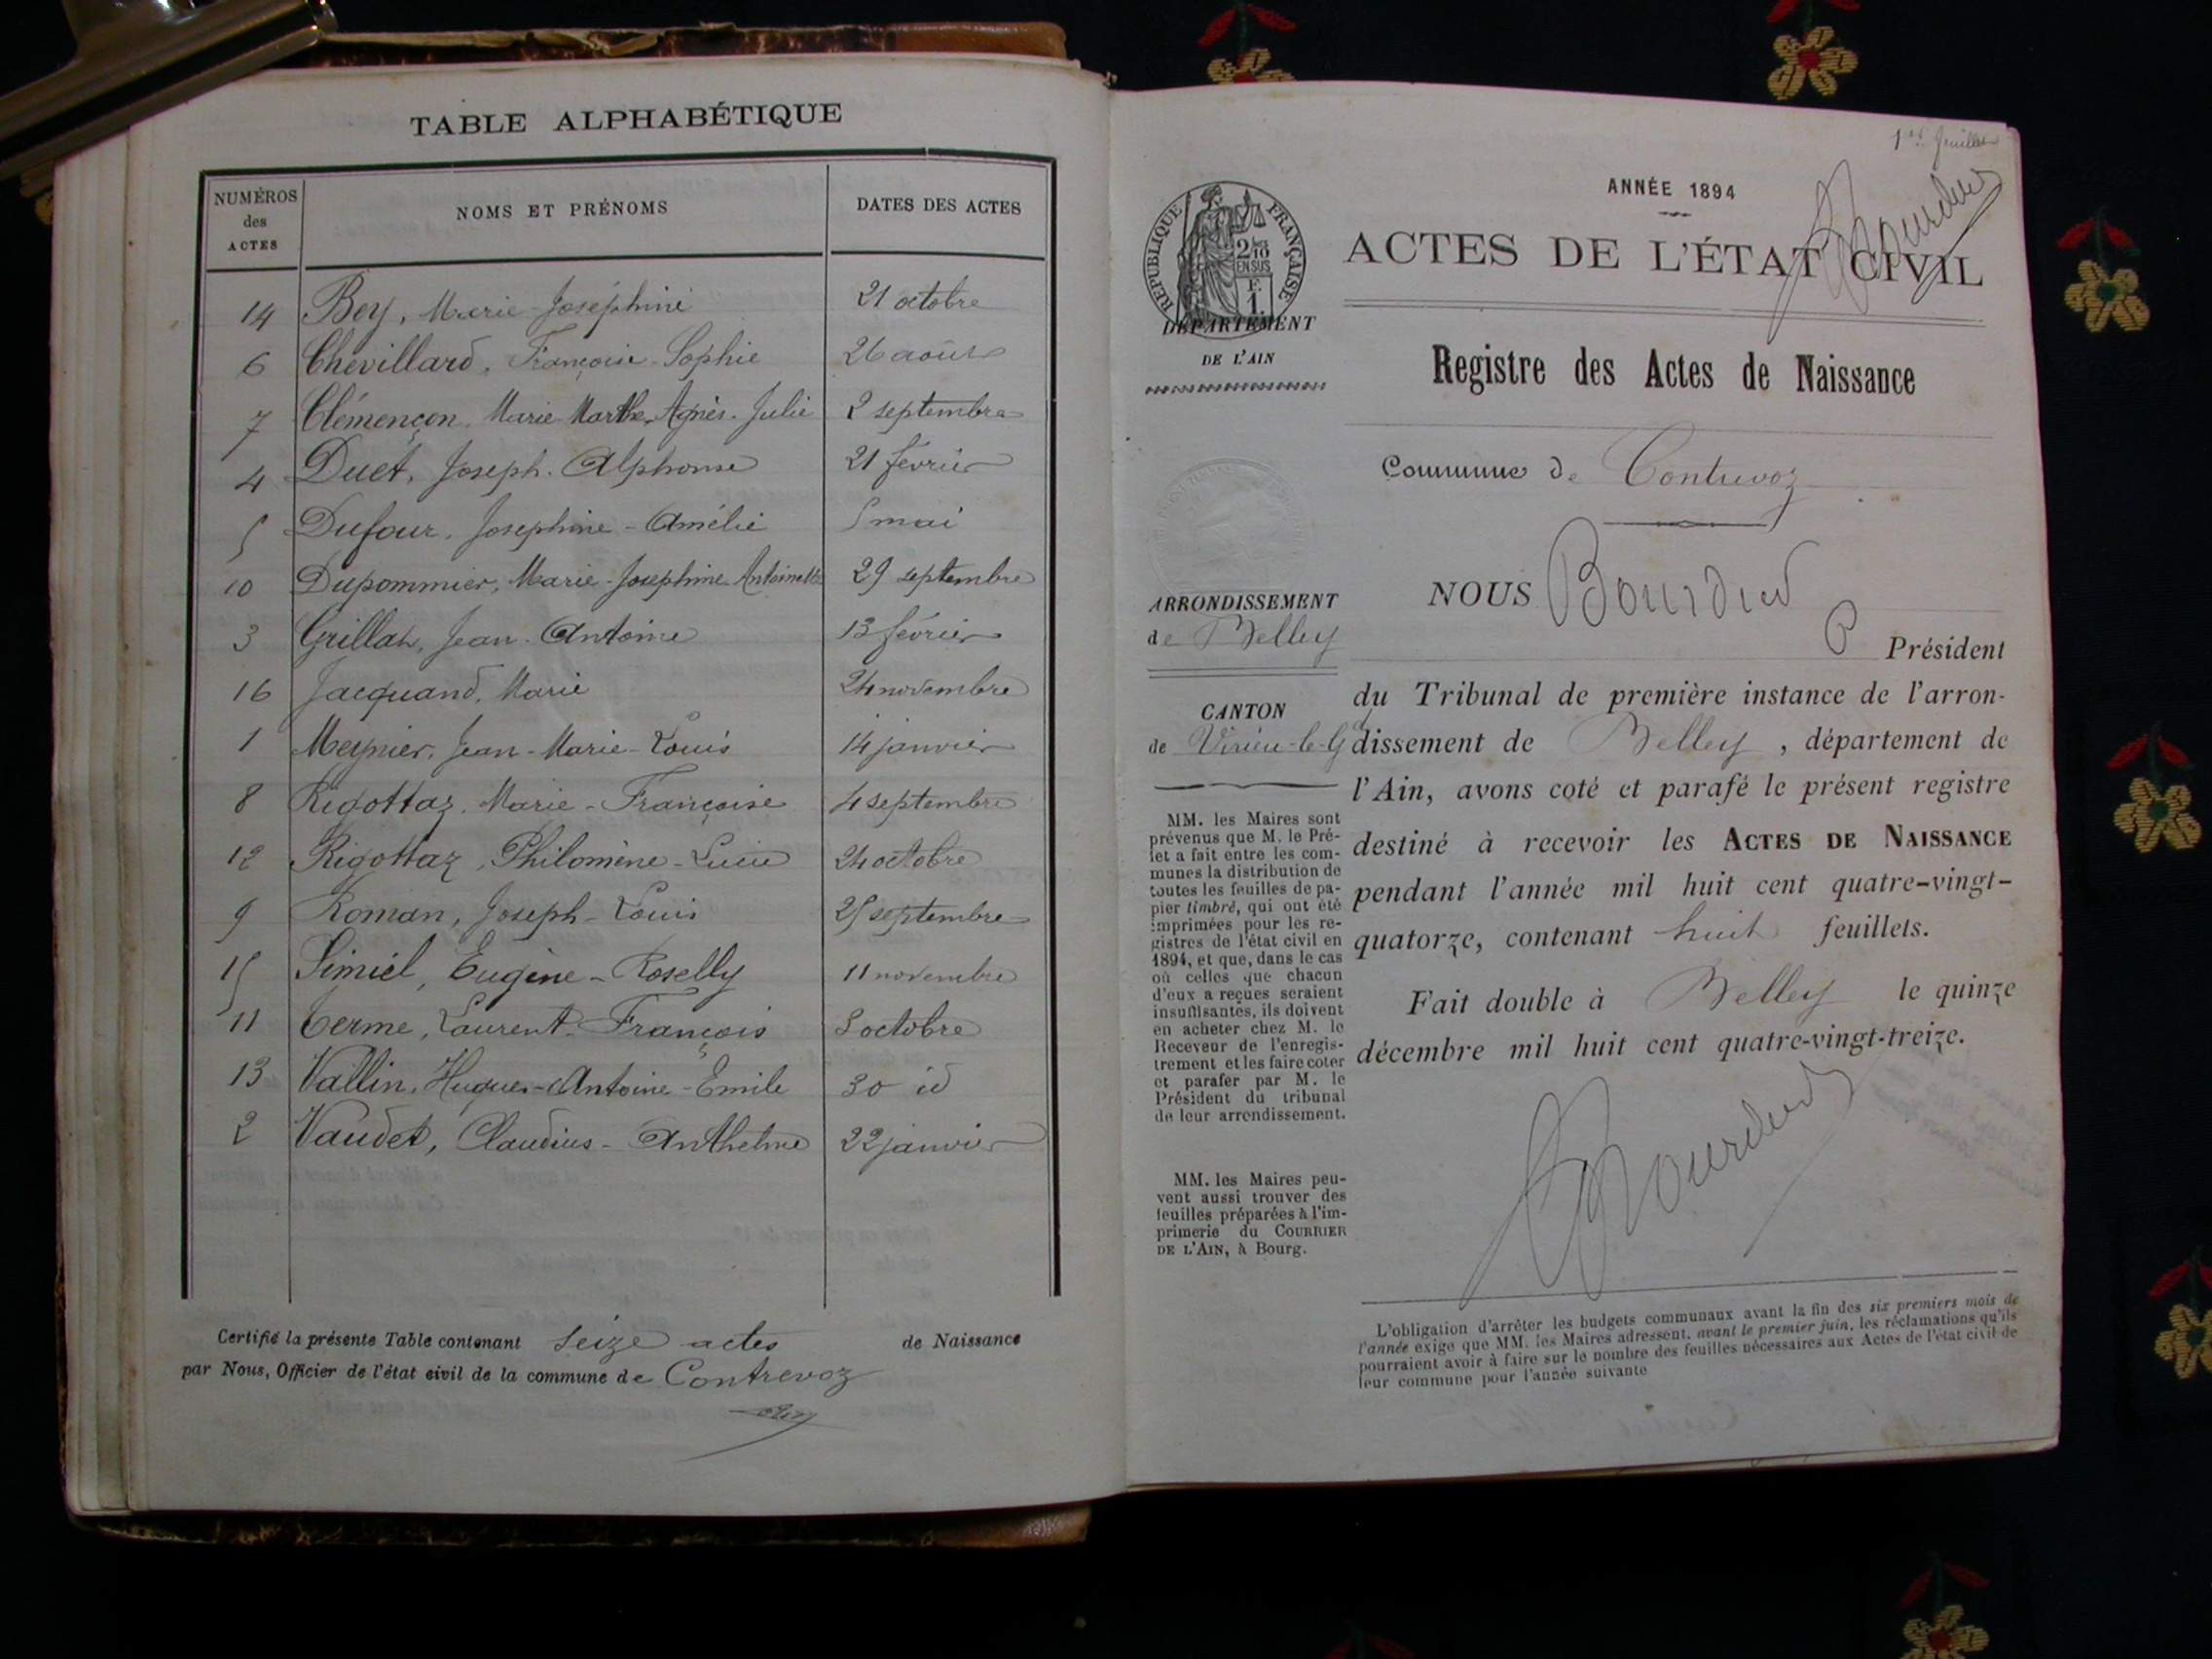 TABLE ALPHABÉTIQUE
NUMÉROS des ACTES NOMS ET PRÉNOMS DATES DES ACTES
14 Bey, Marie-Joséphine 21 octobre
6 Chevillard, Françoise-Sophie 26 août
7 Clémençon, Marie Marthe Agnès-Julie 2 septembre
4 Duet, Joseph-Alphonse 21 février
5 Dufour, Josephine-Amélie 5 mai
10 Dupommier, Marie-Josephine Antoinette 29 septembre
3 Grillat, Jean-Antoine 13 février
16 Jacquand, Marie 24 novembre
1 Meynier, Jean-Marie-Louis 14 janvier
8 Rigottaz, Marie-Françoise 4 septembre
12 Rigottaz, Philomène-Lucie 24 octobre
9 Roman, Joseph-Louis 25 septembre
15 Simiel, Eugène-Roselly 11 novembre
11 Terme, Laurent-François 5 octobre
13 Vallin, Hugues-Antoine-Emile 30 id
2 Vaudet, Claudius-Anthelme 22 janvier
Certifié la présente Table contenant seize actes de Naissance
par Nous, Officier de l'état civil de la commune de Contrevoz
1er feuillet
ANNÉE 1894
RÉPUBLIQUE FRANÇAISE
2/10 EN SUS
F. 1.
ACTES DE L'ÉTAT CIVIL
DÉPARTEMENT
DE L'AIN
Registre des Actes de Naissance
Commune de Contrevoz
ARRONDISSEMENT
de Belley
CANTON
de Virieu-le-Gd
MM. les Maires sont
prévenus que M. le Pré-
fet a fait entre les com-
munes la distribution de
toutes les feuilles de pa-
pier timbré, qui ont été
imprimées pour les re-
gistres de l'état civil en
1894, et que, dans le cas
où celles que chacun
d'eux a reçues seraient
insuffisantes, ils doivent
en acheter chez M. le
Receveur de l'enregis-
trement et les faire coter
et parafer par M. le
Président du tribunal
de leur arrondissement.
MM. les Maires peu-
vent aussi trouver des
feuilles préparées à l'im-
primerie du COURRIER
DE L'AIN, à Bourg.
NOUS
Président
du Tribunal de première instance de l'arron-
dissement de Belley, département de
l'Ain, avons coté et parafé le présent registre
destiné à recevoir les ACTES DE NAISSANCE
pendant l'année mil huit cent quatre-vingt-
quatorze, contenant huit feuillets.
Fait double à Belley le quinze
décembre mil huit cent quatre-vingt-treize.
L'obligation d'arrêter les budgets communaux avant la fin des six premiers mois de
l'année exige que MM. les Maires adressent, avant le premier juin, les réclamations qu'ils
pourraient avoir à faire sur le nombre des feuilles nécessaires aux Actes de l'état civil de
leur commune pour l'année suivante